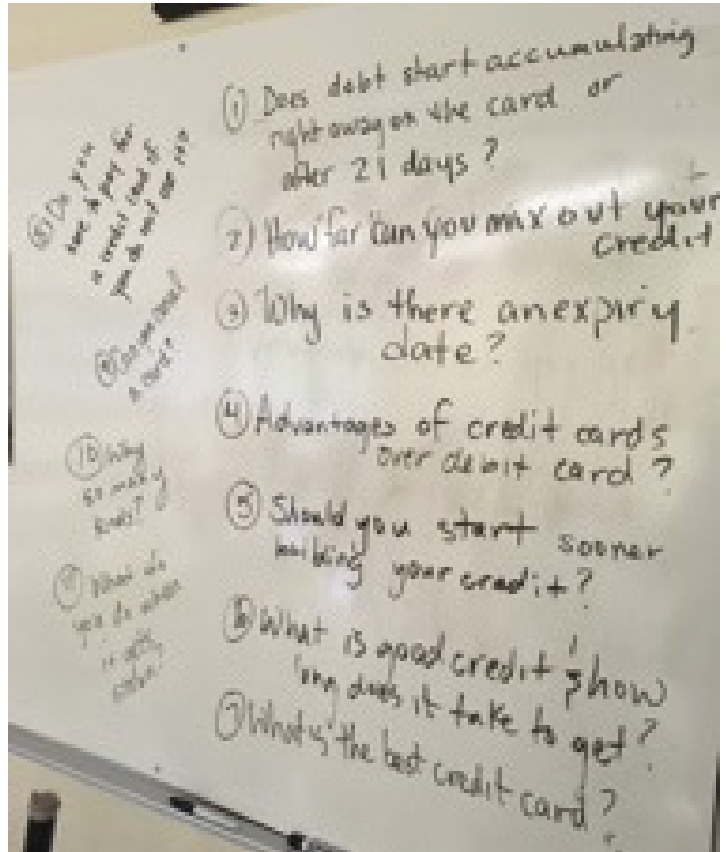 ① Does debt start accumulating
right away on the card or
after 21 days?
2) How far can you max out your
credit
③ Why is there an expiry
date?
④ Advantages of credit cards
over debit card?
⑤ Should you start sooner
building your credit?
⑥ What is good credit & how
long does it take to get?
⑦ What is the best credit card?
⑧ Do you
have to pay for
a credit card if
you do not use it?
a card?
⑩ Why
so many
kinds?
What do
you do when